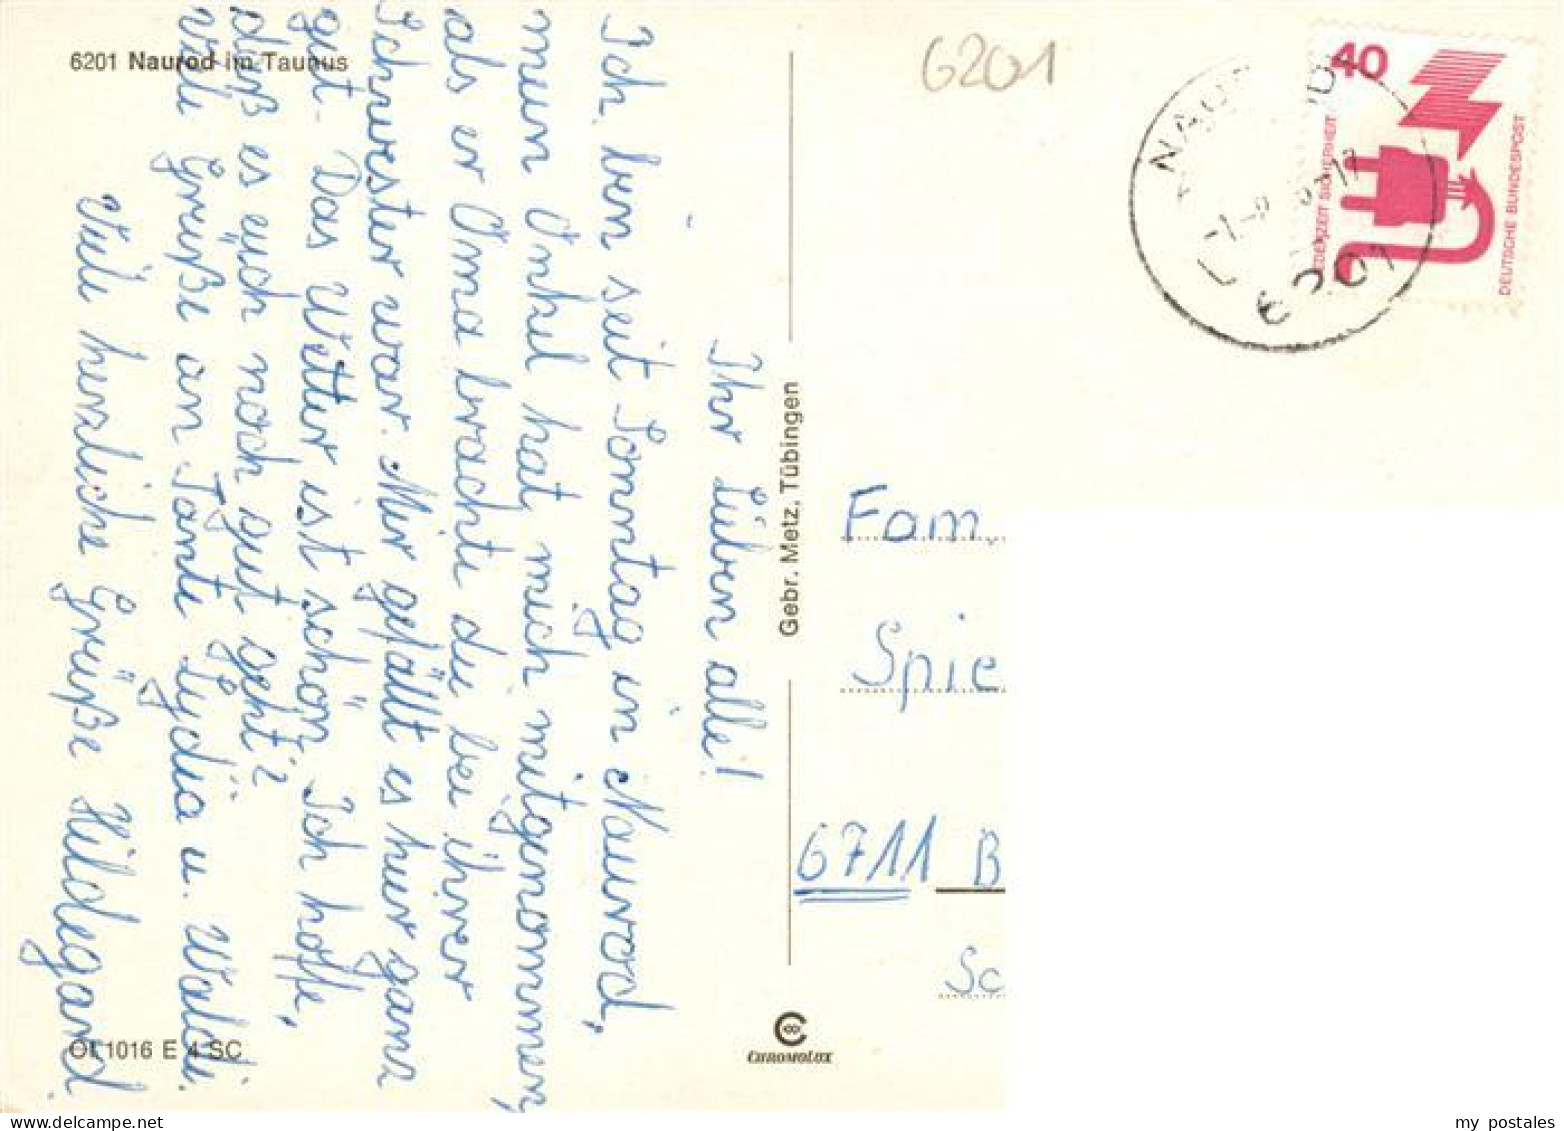 6201 Naurod im Taunus
Ihr Lieben alle!
Ich bin seit Sonntag in Naurod,
mein Onkel hat mich mitgenommen,
als er Oma brachte die bei ihrer
Schwester war. Mir gefällt es hier ganz
gut. Das Wetter ist schön. Ich hoffe,
daß es euch noch gut geht?
Viele Grüße an Tante Lydia u. Waldi.
Viele herzliche Grüße Hildegard
OL 1016 E 4 SC
Gebr. Metz, Tübingen
CHROMOLUX
6201
40
JEDERZEIT SICHERHEIT
DEUTSCHE BUNDESPOST
NAUROD
6201
Fam.
Spie
6711 B
Sc
my postales